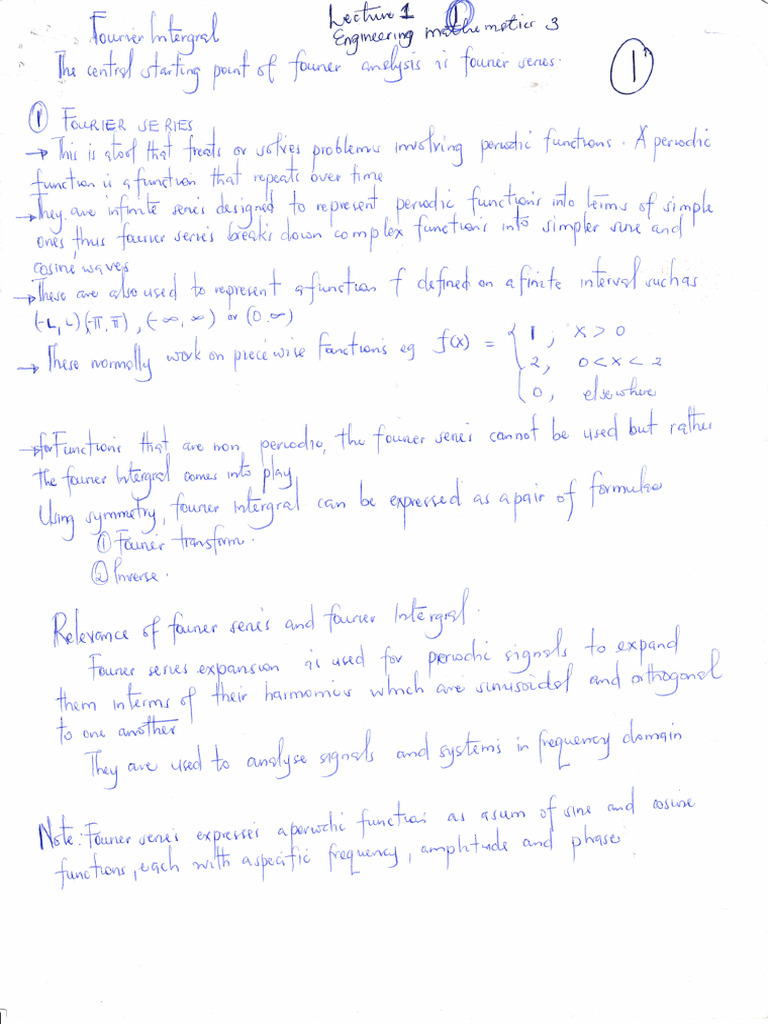 Lecture 1 ①
Fourier Intergral Engineering mathematics 3
The central starting point of fourier analysis is fourier series.
①
① FOURIER SERIES
→ This is a tool that treats or solves problems involving periodic functions. A periodic
function is a function that repeats over time
→ They are infinite series designed to represent periodic functions into terms of simple
ones, thus fourier series breaks down complex functions into simpler sine and
cosine waves
→ These are also used to represent a function f defined on a finite interval such as
(-L, L) (-π, π), (-∞, ∞) or (0, ∞)
→ These normally work on piecewise functions eg f(x) = { 1, x > 0
2, 0 < x < 2
0, elsewhere
→ for Functions that are non periodic, the fourier series cannot be used but rather
the fourier Intergral comes into play
Using symmetry, fourier intergral can be expressed as a pair of formulae
① Fourier transform.
② Inverse.
Relevance of fourier series and fourier Intergral.
Fourier series expansion is used for periodic signals to expand
them interms of their harmonics which are sinusoidal and orthogonal
to one another
They are used to analyse signals and systems in frequency domain
Note: Fourier series expresses a periodic function as a sum of sine and cosine
functions, each with a specific frequency, amplitude and phase.